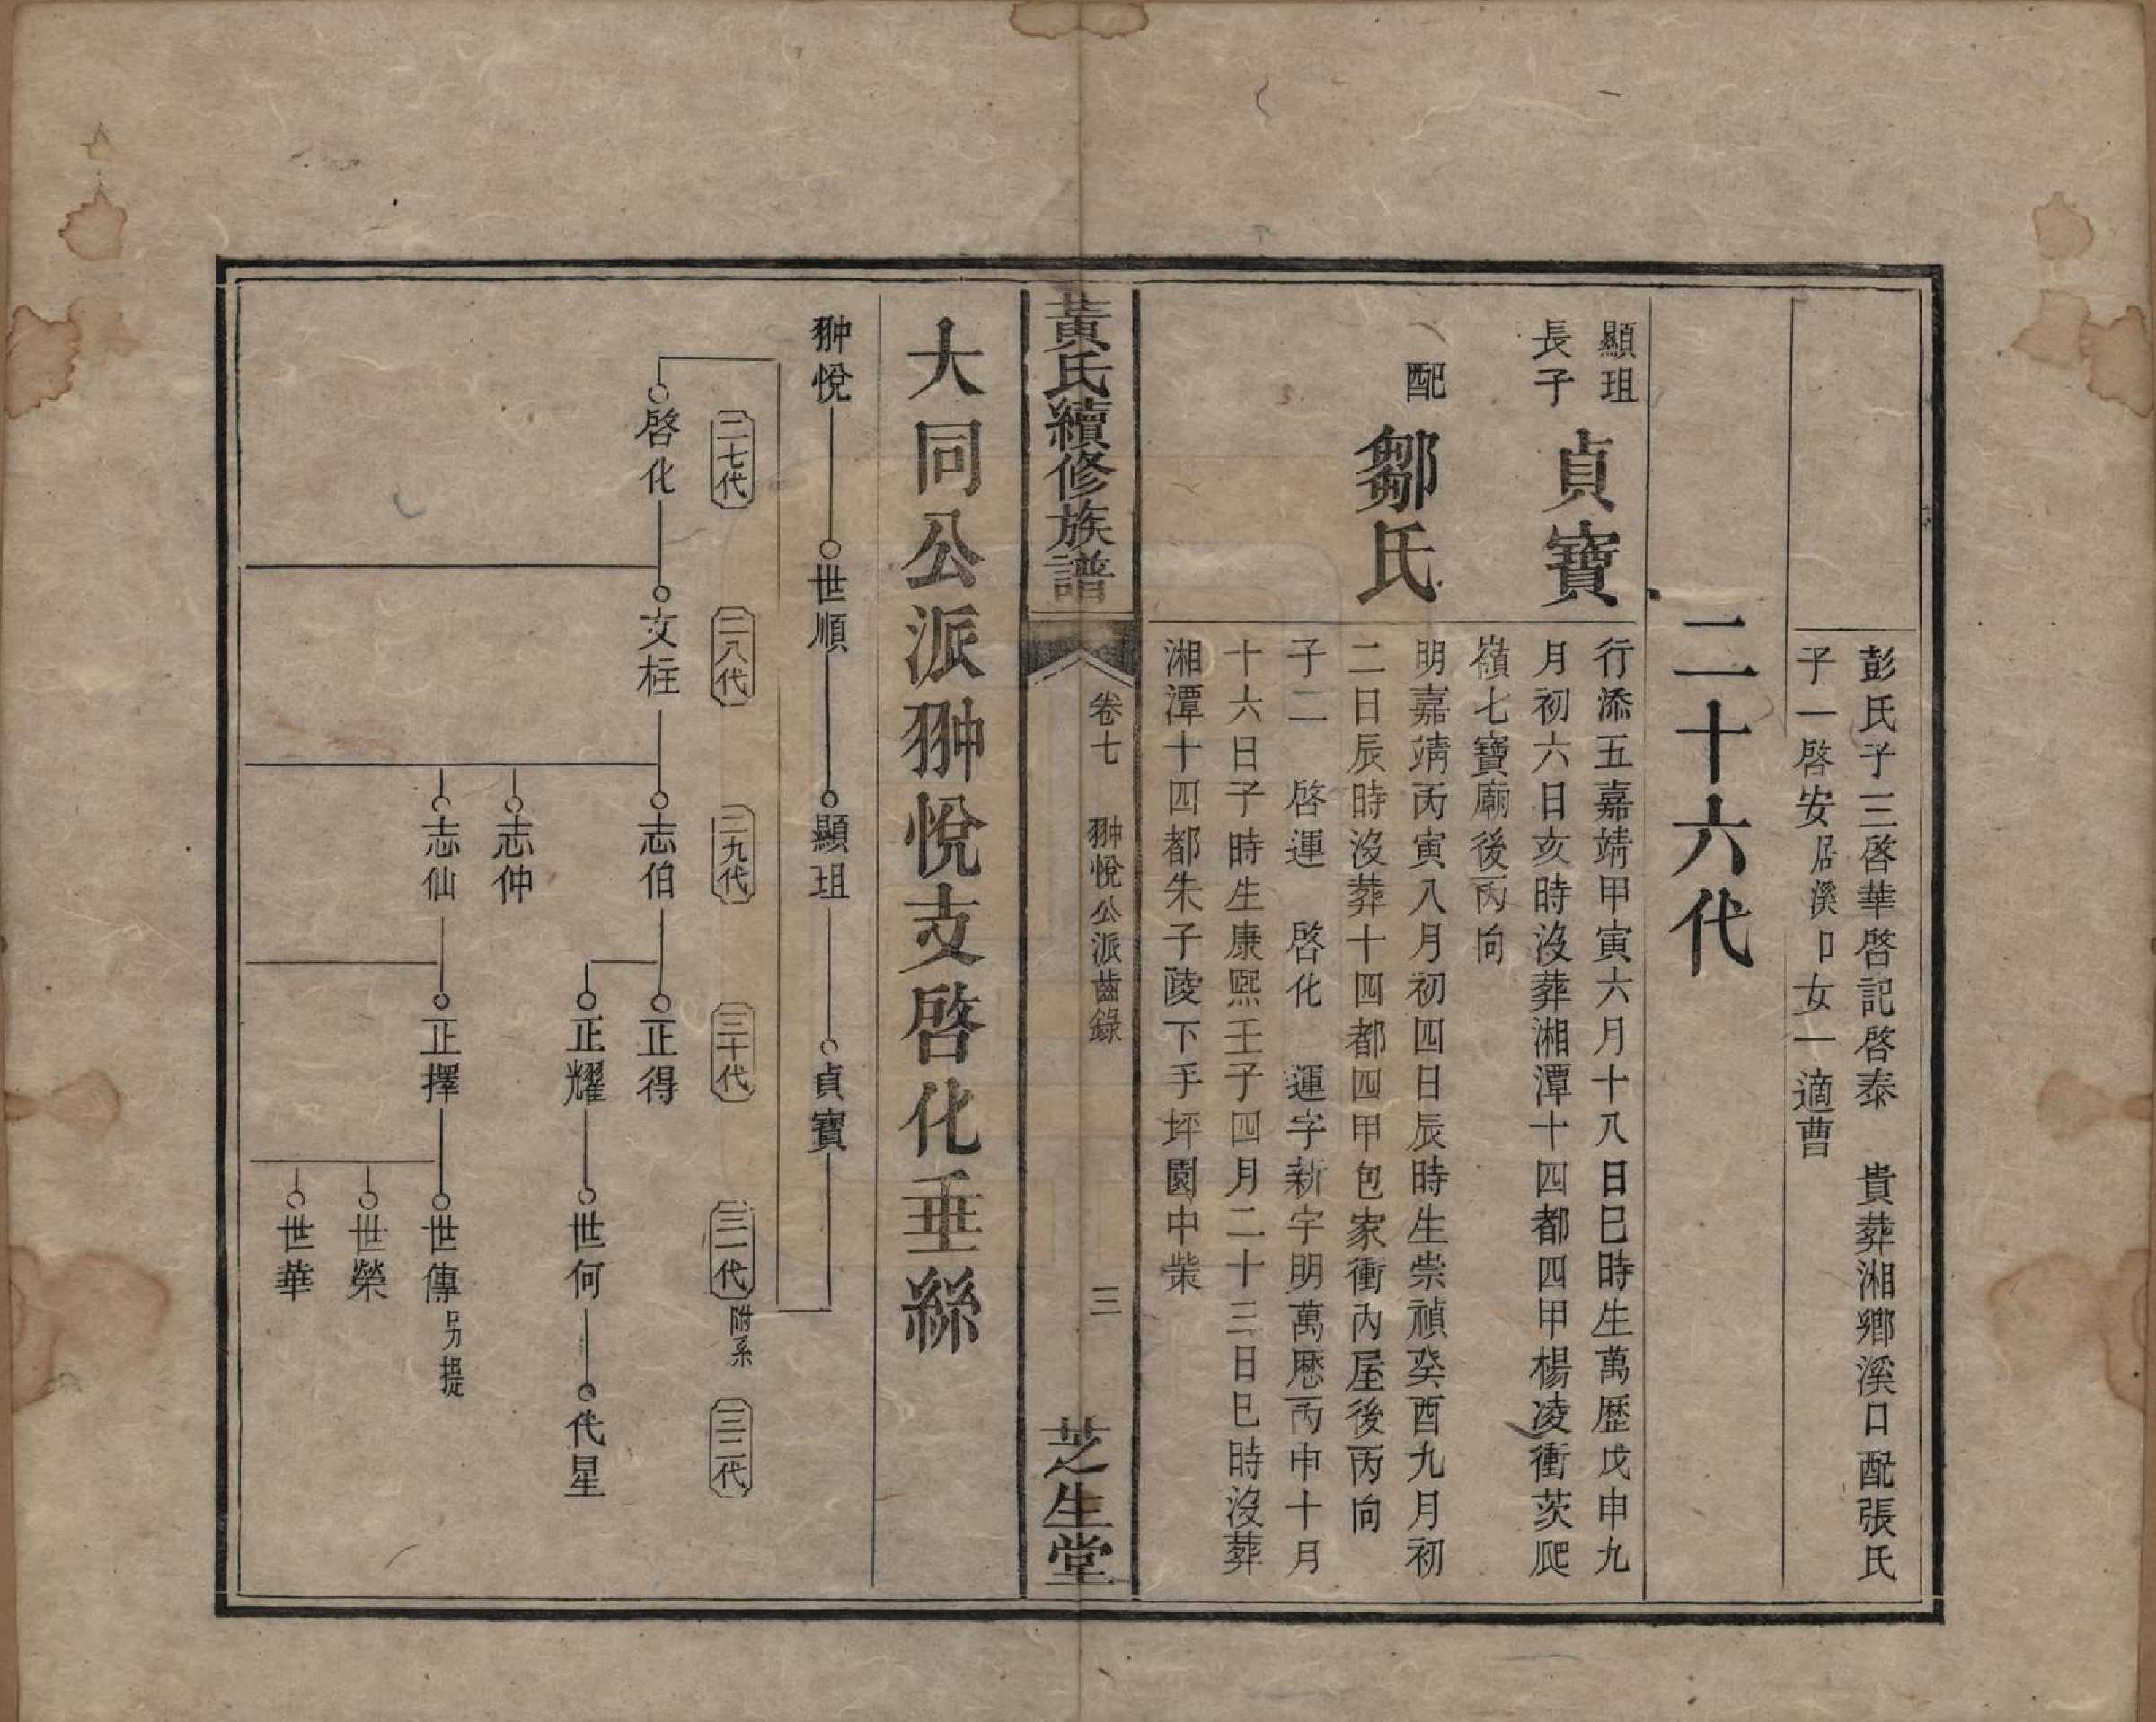 彭氏子三啓華啓記啓泰　貴葬湘鄉溪口配張氏
子一啓安居溪口女一適曹
二十六代
顯珇
長子
貞寶
行添五嘉靖甲寅六月十八日巳時生萬歷戊申九
月初六日亥時沒葬湘潭十四都四甲楊凌衝茨爬
嶺七寶廟後丙向
配
鄒氏
明嘉靖丙寅八月初四日辰時生崇禎癸酉九月初
二日辰時沒葬十四都四甲包家衝內屋後丙向
子二　啓運　啓化　運字新宇明萬歷丙申十月
十六日子時生康熙壬子四月二十三日巳時沒葬
湘潭十四都朱子陵下手坪園中柴
黃氏續修族譜
卷七　翀悅公派齒錄
三
芝生堂
大同公派翀悅支啓化垂絲
翀悅　世順　顯珇　貞寶
二七代　二八代　二九代　三十代　三一代　附系　三二代
啓化　文柱　志伯　正得
正耀　世何　代星
志仲
志仙　正擇　世傳　另提
世榮
世華